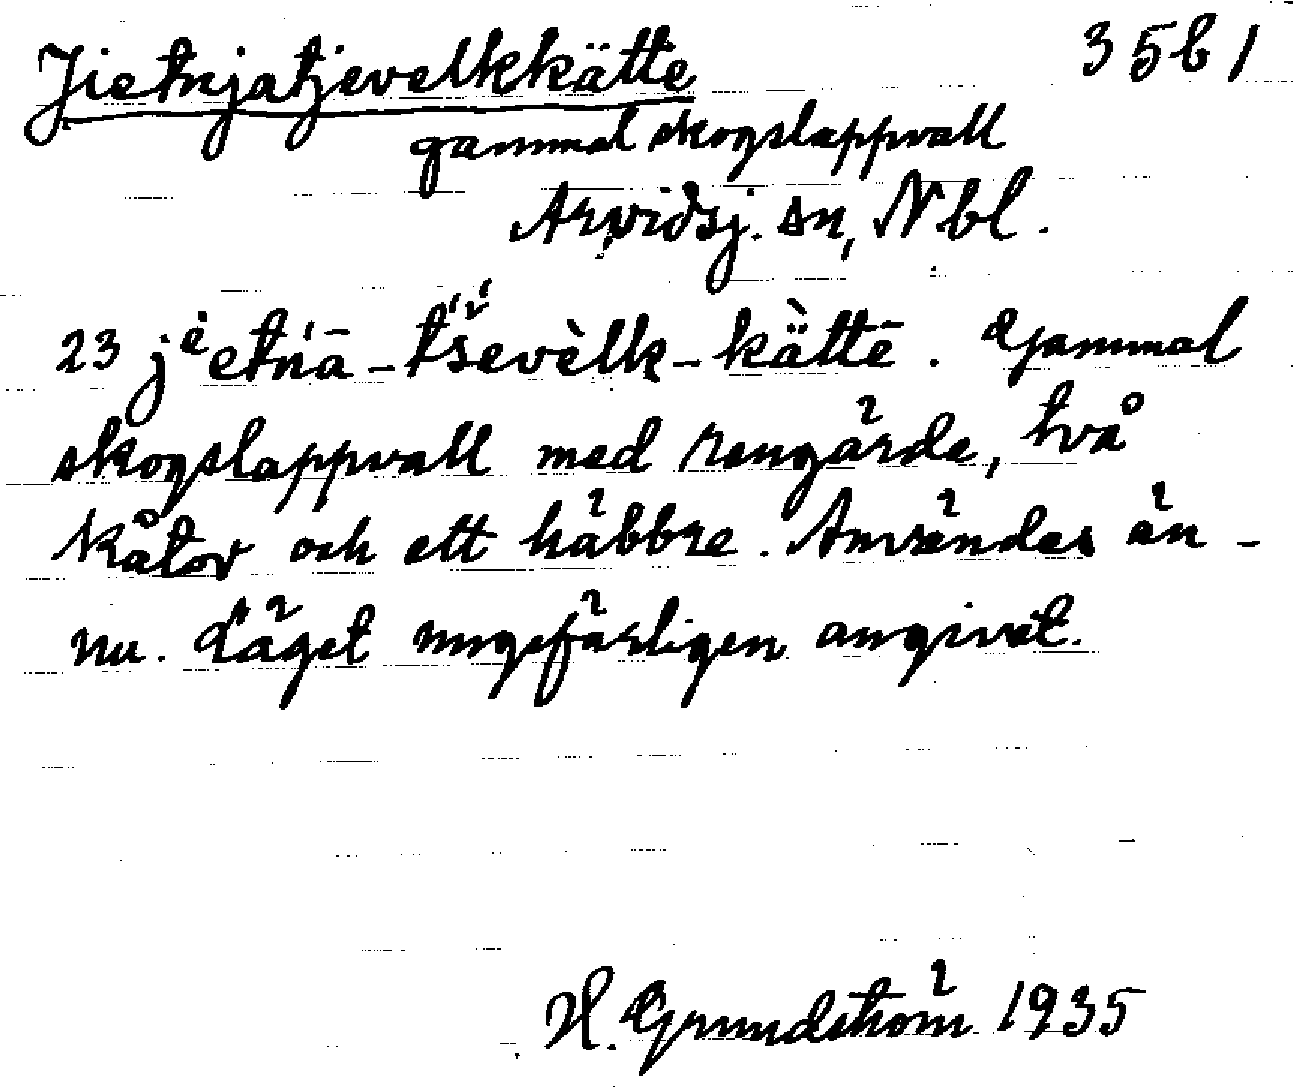 Jietnjatjevelkkätte 35b1
gammal skogslappvall
Arvidsj. sn, Nbl.
23 jᵉetńā-t́ševèlk-kä̀ttē. Gammal
skogslappvall med rengärde, två
kåtor och ett häbbre. Användes än-
nu. Läget ungefärligen angivet.
H. Grundström 1935